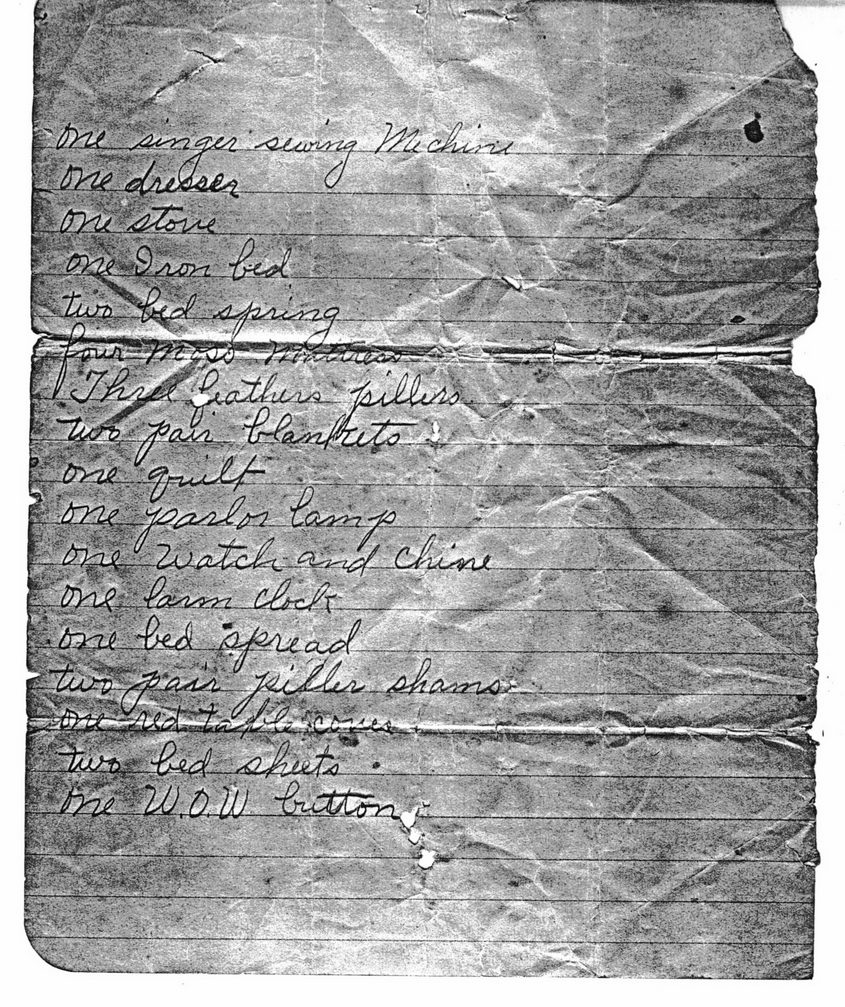 one singer sewing Mechine
one dresser
one stove
one Iron bed
two bed spring
four Moss Mattress
Three feathers pillers
two pair blankets
one quilt
one parlor lamp
one Watch and Chine
one larm clock
one bed spread
two pair piller shams
one red table cover
two bed sheets
one W.O.W button